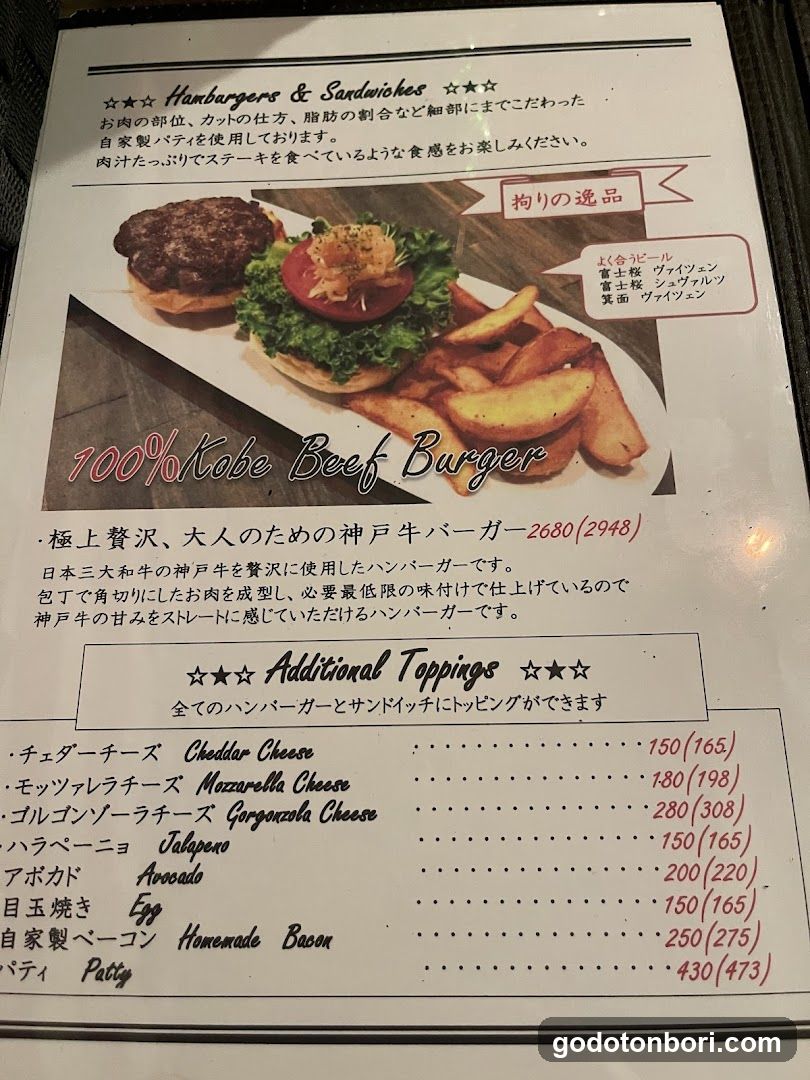 ☆★☆ Hamburgers & Sandwiches ☆★☆
お肉の部位、カットの仕方、脂肪の割合など細部にまでこだわった
自家製パティを使用しております。
肉汁たっぷりでステーキを食べているような食感をお楽しみください。
拘りの逸品
よく合うビール
富士桜 ヴァイツェン
富士桜 シュヴァルツ
箕面 ヴァイツェン
100% Kobe Beef Burger
・極上贅沢、大人のための神戸牛バーガー 2680(2948)
日本三大和牛の神戸牛を贅沢に使用したハンバーガーです。
包丁で角切りにしたお肉を成型し、必要最低限の味付けで仕上げているので
神戸牛の甘みをストレートに感じていただけるハンバーガーです。
☆★☆ Additional Toppings ☆★☆
全てのハンバーガーとサンドイッチにトッピングができます
・チェダーチーズ Cheddar Cheese ・・・・・・・・・・・・・・・・150(165)
・モッツァレラチーズ Mozzarella Cheese ・・・・・・・・・・・・・・・・180(198)
・ゴルゴンゾーラチーズ Gorgonzola Cheese ・・・・・・・・・・・・・・・・280(308)
・ハラペーニョ Jalapeno ・・・・・・・・・・・・・・・・150(165)
アボカド Avocado ・・・・・・・・・・・・・・・・200(220)
目玉焼き Egg ・・・・・・・・・・・・・・・・150(165)
自家製ベーコン Homemade Bacon ・・・・・・・・・・・・・・・・250(275)
パティ Patty ・・・・・・・・・・・・・・・・430(473)
godotonbori.com